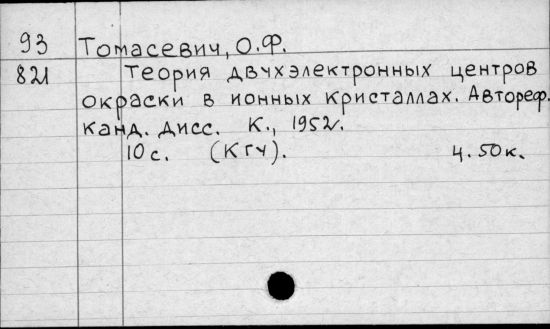 93 Томасевич, О.Ф.
821 Теория двухэлектронных центров
окраски в ионных кристаллах. Автореф.
канд. дисс. К., 1952.
10 с. (КГУ). ц. 50 к.